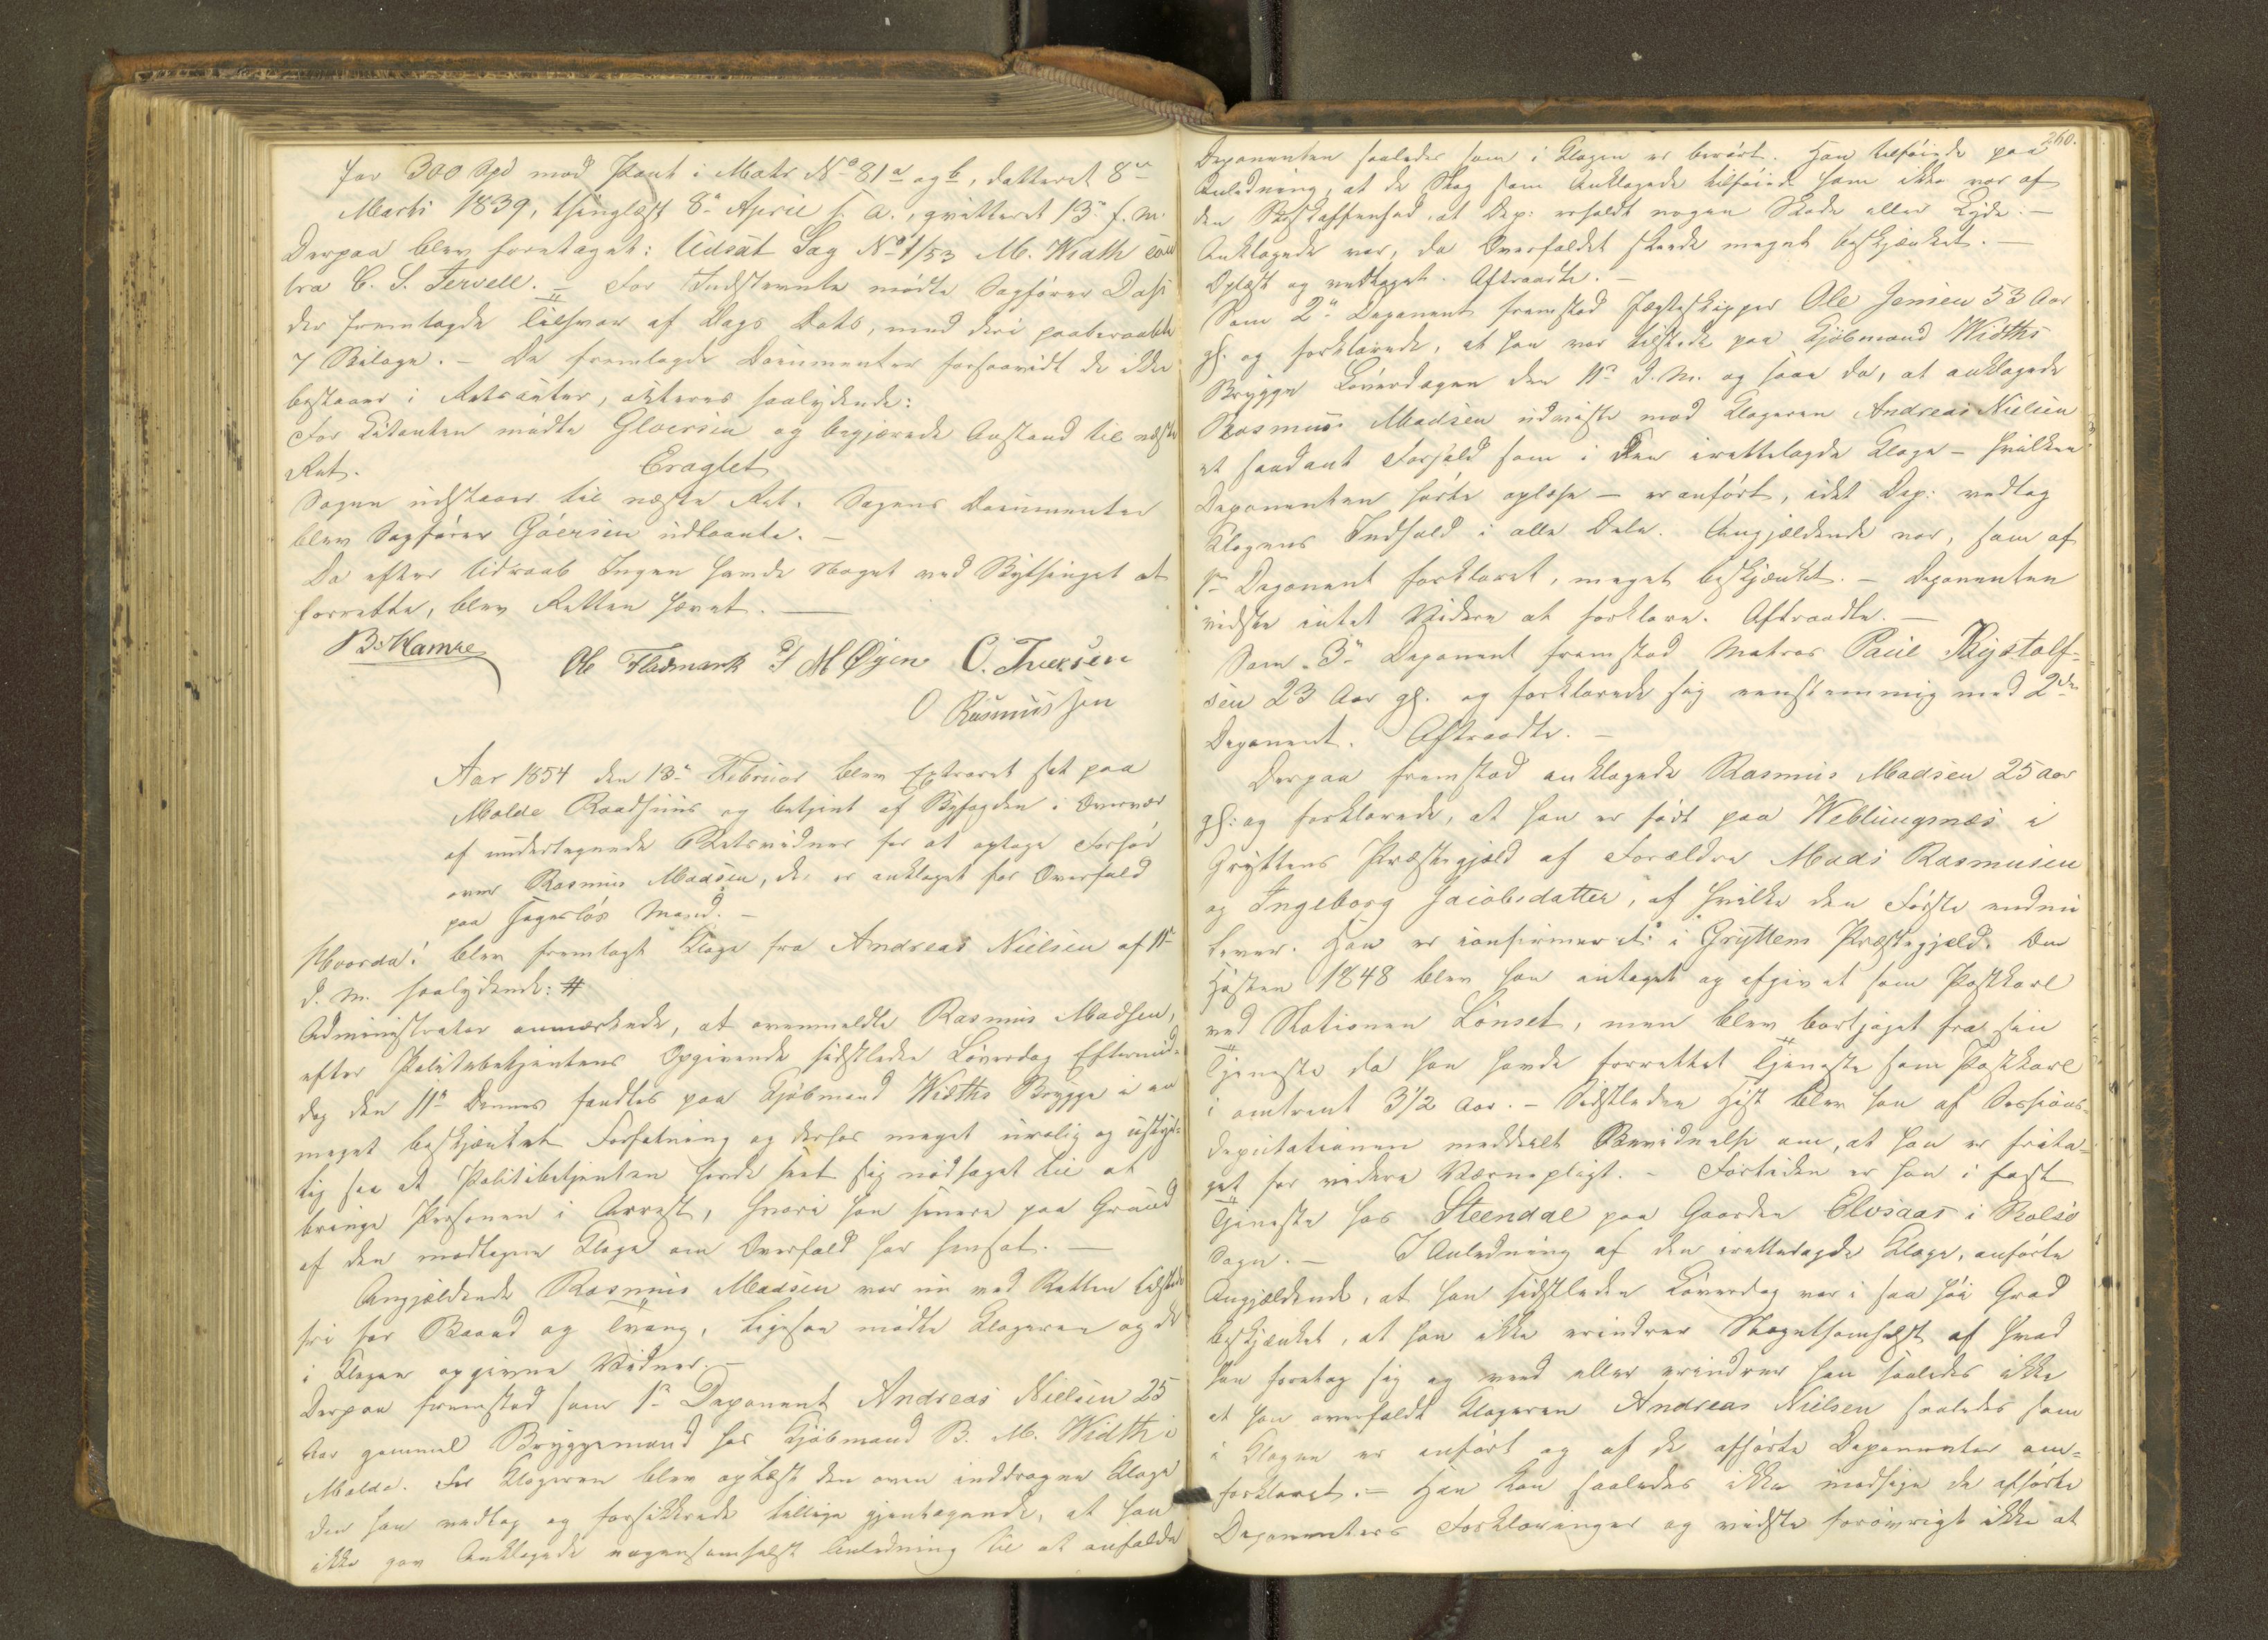 for 300 Spd med Pant i Matr No 81 a og b, datteret 8de
Marti 1839, thinglæst 8de April s. a., qvitteret 13de f. M.
Derpaa blev foretaget: Udsat Sag No 1/53 M. Wiath con
tra C. S. Fervell. – For Indstevnte mødte Sagfører Dahl
der fremlagde Tilsvar af Dags Dato, med deri paaberaabte
7 Bilage. – De fremlagde Documenter forsaavidt de ikke
bestaaer i Retsacter, acteres saalydende:
For Citanten mødte Gløersen og begjærede Anstand til næste
Ret. Eragtet
Sagen udstaaer til næste Ret. Sagens Documenter
blev Sagfører Gløersen udlaante. –
Da efter Udraab Ingen havde Noget ved Bythinget at
forrette, blev Retten hævet. –
B. Hamre
Ole Flademark T M Øyen O. Iversen
O Rasmussen
Aar 1854 den 13de Februar blev Extraret sat paa
Molde Raadhuus og betjent af Byfogden i Overvær
af undertegnede Retsvidner for at optage Forhør
over Rasmus Madsen, der er anklaget for Overfald
paa sagesløs Mand. –
Hvorda: blev fremlagt Klage fra Andreas Nielsen af 11te
d. M. saalydende: #
Administrator anmærkede, at ovenmeldte Rasmus Madsen,
efter Politibetjentens Opgivende sidstleden Løverdag Eftermid-
dag den 11te Dennes fandtes paa Kjøbmand Widths Brygge i en
meget beskjænket Forfatning og derhos meget urolig og ustyr-
lig saa at Politibetjenten havde seet sig nødsaget til at
bringe Personen i Arrest, hvori han senere paa Grund
af den modtagne Klage om Overfald har hensat. –
Angjældende Rasmus Madsen var nu ved Retten tilstede
fri for Baand og Tvang, ligesom mødte Klageren og de
i Klagen opgivne Vidner. –
Derpaa fremstod som 1ste Deponent Andreas Nielsen 25
Aar gammel Bryggemand hos Kjøbmand B. M. Width i
Molde. For Klageren blev oplæst den oven inddragne Klage
den han vedtog og forsikkrede tillige gjentagende, at han
ikke gav Anklagede nogensomhelst Anledning til at anfalde
260.
Deponenten saaledes som i Klagen er berørt. Han tilføiede paa
Anledning, at de Slag som Anklagede tilføiede ham ikke var af
den Beskaffenhed, at Dep: erholdt nogen Skade eller Lyde. –
Anklagede var, da Overfaldet skeede meget beskjænket. –
Oplæst og vedtaget. Aftraadte. –
Som 2de Deponent fremstod Jægteskipper Ole Jensen 53 Aar
gl. og forklarede, at han var tilstede paa Kjøbmand Widths
Brygge Løverdagen den 11te d. M. og saae da, at anklagede
Rasmus Madsen udviste mod Klageren Andreas Nielsen
et saadant Forhold som i den irettelagde Klage – hvilken
Deponenten hørte oplæse – er anført, idet Dep: vedtog
Klagens Indhold i alle Dele. Angjældende var, som af
1ste Deponent forklaret, meget beskjænket. – Deponenten
vidste intet Videre at forklare. Aftraadte. –
Som 3die Deponent fremstod Matros Paul Rystolf-
sen 23 Aar gl. og forklarede sig eenstemmig med 2den
Deponent. Aftraadte. –
Derpaa fremstod anklagede Rasmus Madsen 25 Aar
gl: og forklarede, at han er født paa Weblungsnæs i
Gryttens Præstegjæld af Forældre Mads Rasmusen
og Ingeborg Jacobsdatter, af hvilke den Første endnu
lever. Han er confirmeret i Gryttens Præstegjæld. Om
Høsten 1848 blev han antaget og afgivet som Postkarl
ved Stationen Lønset, men blev bortjaget fra sin
Tjeneste da han havde forrettet Tjeneste som Postkarl
i omtrent 3 1/2 Aar. – Sidstleden Høst blev han af Sessions-
deputationen meddeelt Bevidnelse om, at han er frita-
get for videre Værnepligt. – Fortiden er han i fast
Tjeneste hos Steendal paa Gaarden Elvsaas i Bolsø
Sogn. – I Anledning af den irettelagde Klage, anførte
Angjældende, at han sidstleden Løverdag var i saa høi Grad
beskjænket, at han ikke erindrer Nogetsomhelst af hvad
han foretog sig og med eller erindrer han saaledes ikke
at han overfaldt Klageren Andreas Nielsen saaledes som
i Klagen er anført og af de afhørte Deponenter om-
forklaret. – Han kan saaledes ikke modsige de afhørte
Deponenters Forklaringer og vidste forøvrigt ikke at